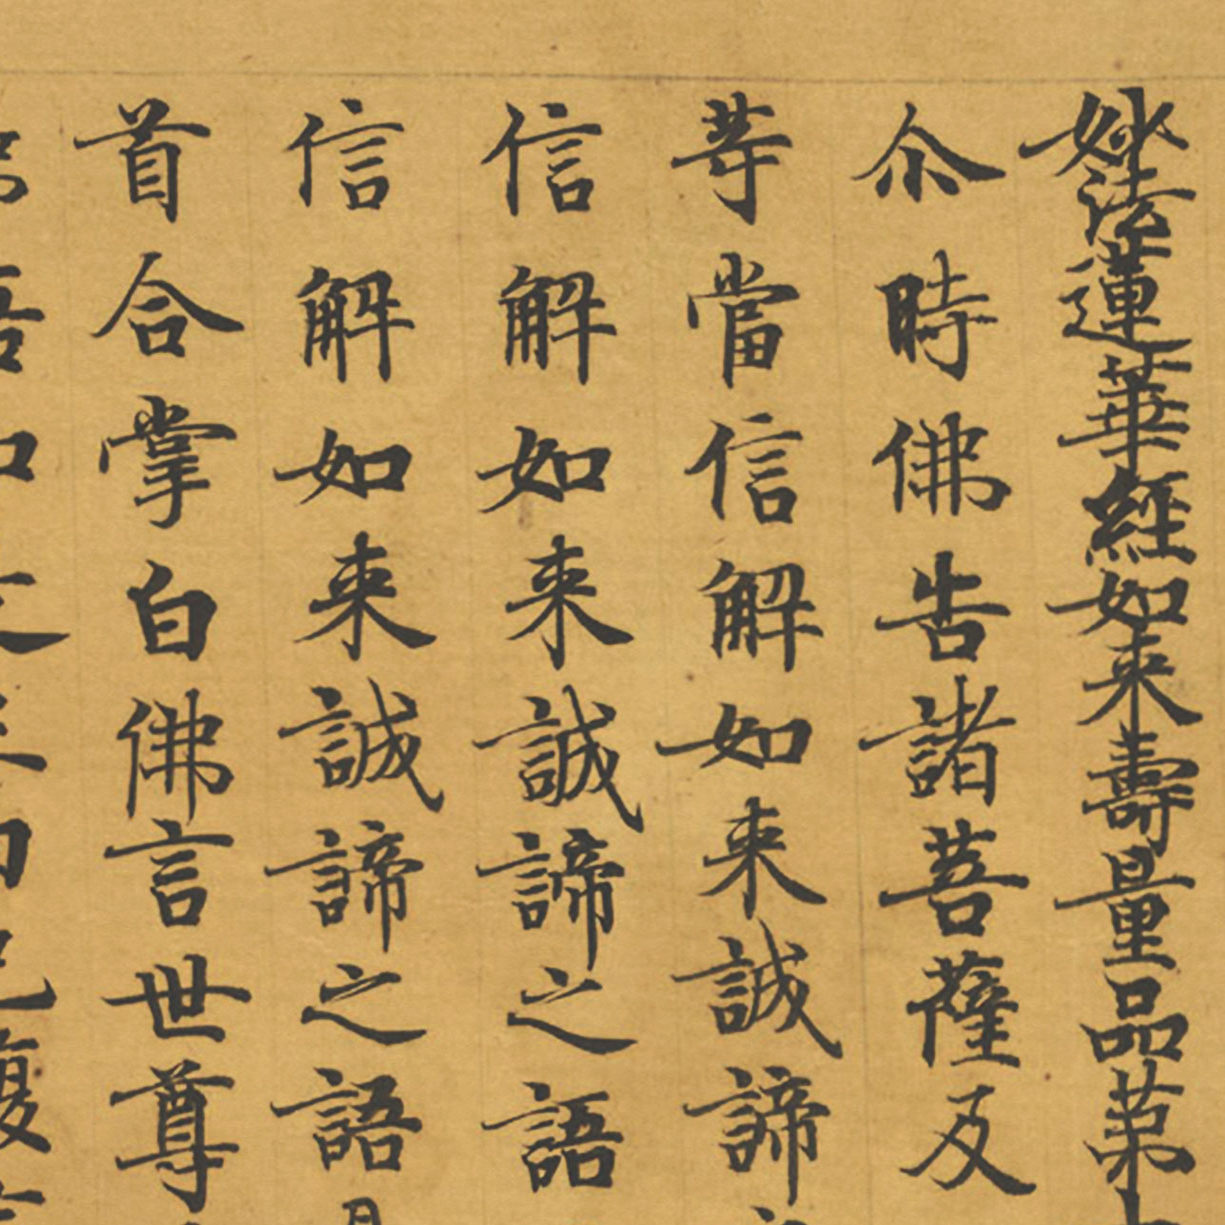 妙法蓮華經如来壽量品第
尒時佛告諸菩薩及
等當信解如来誠諦
信解如来誠諦之語
信解如来誠諦之語
首合掌白佛言世尊